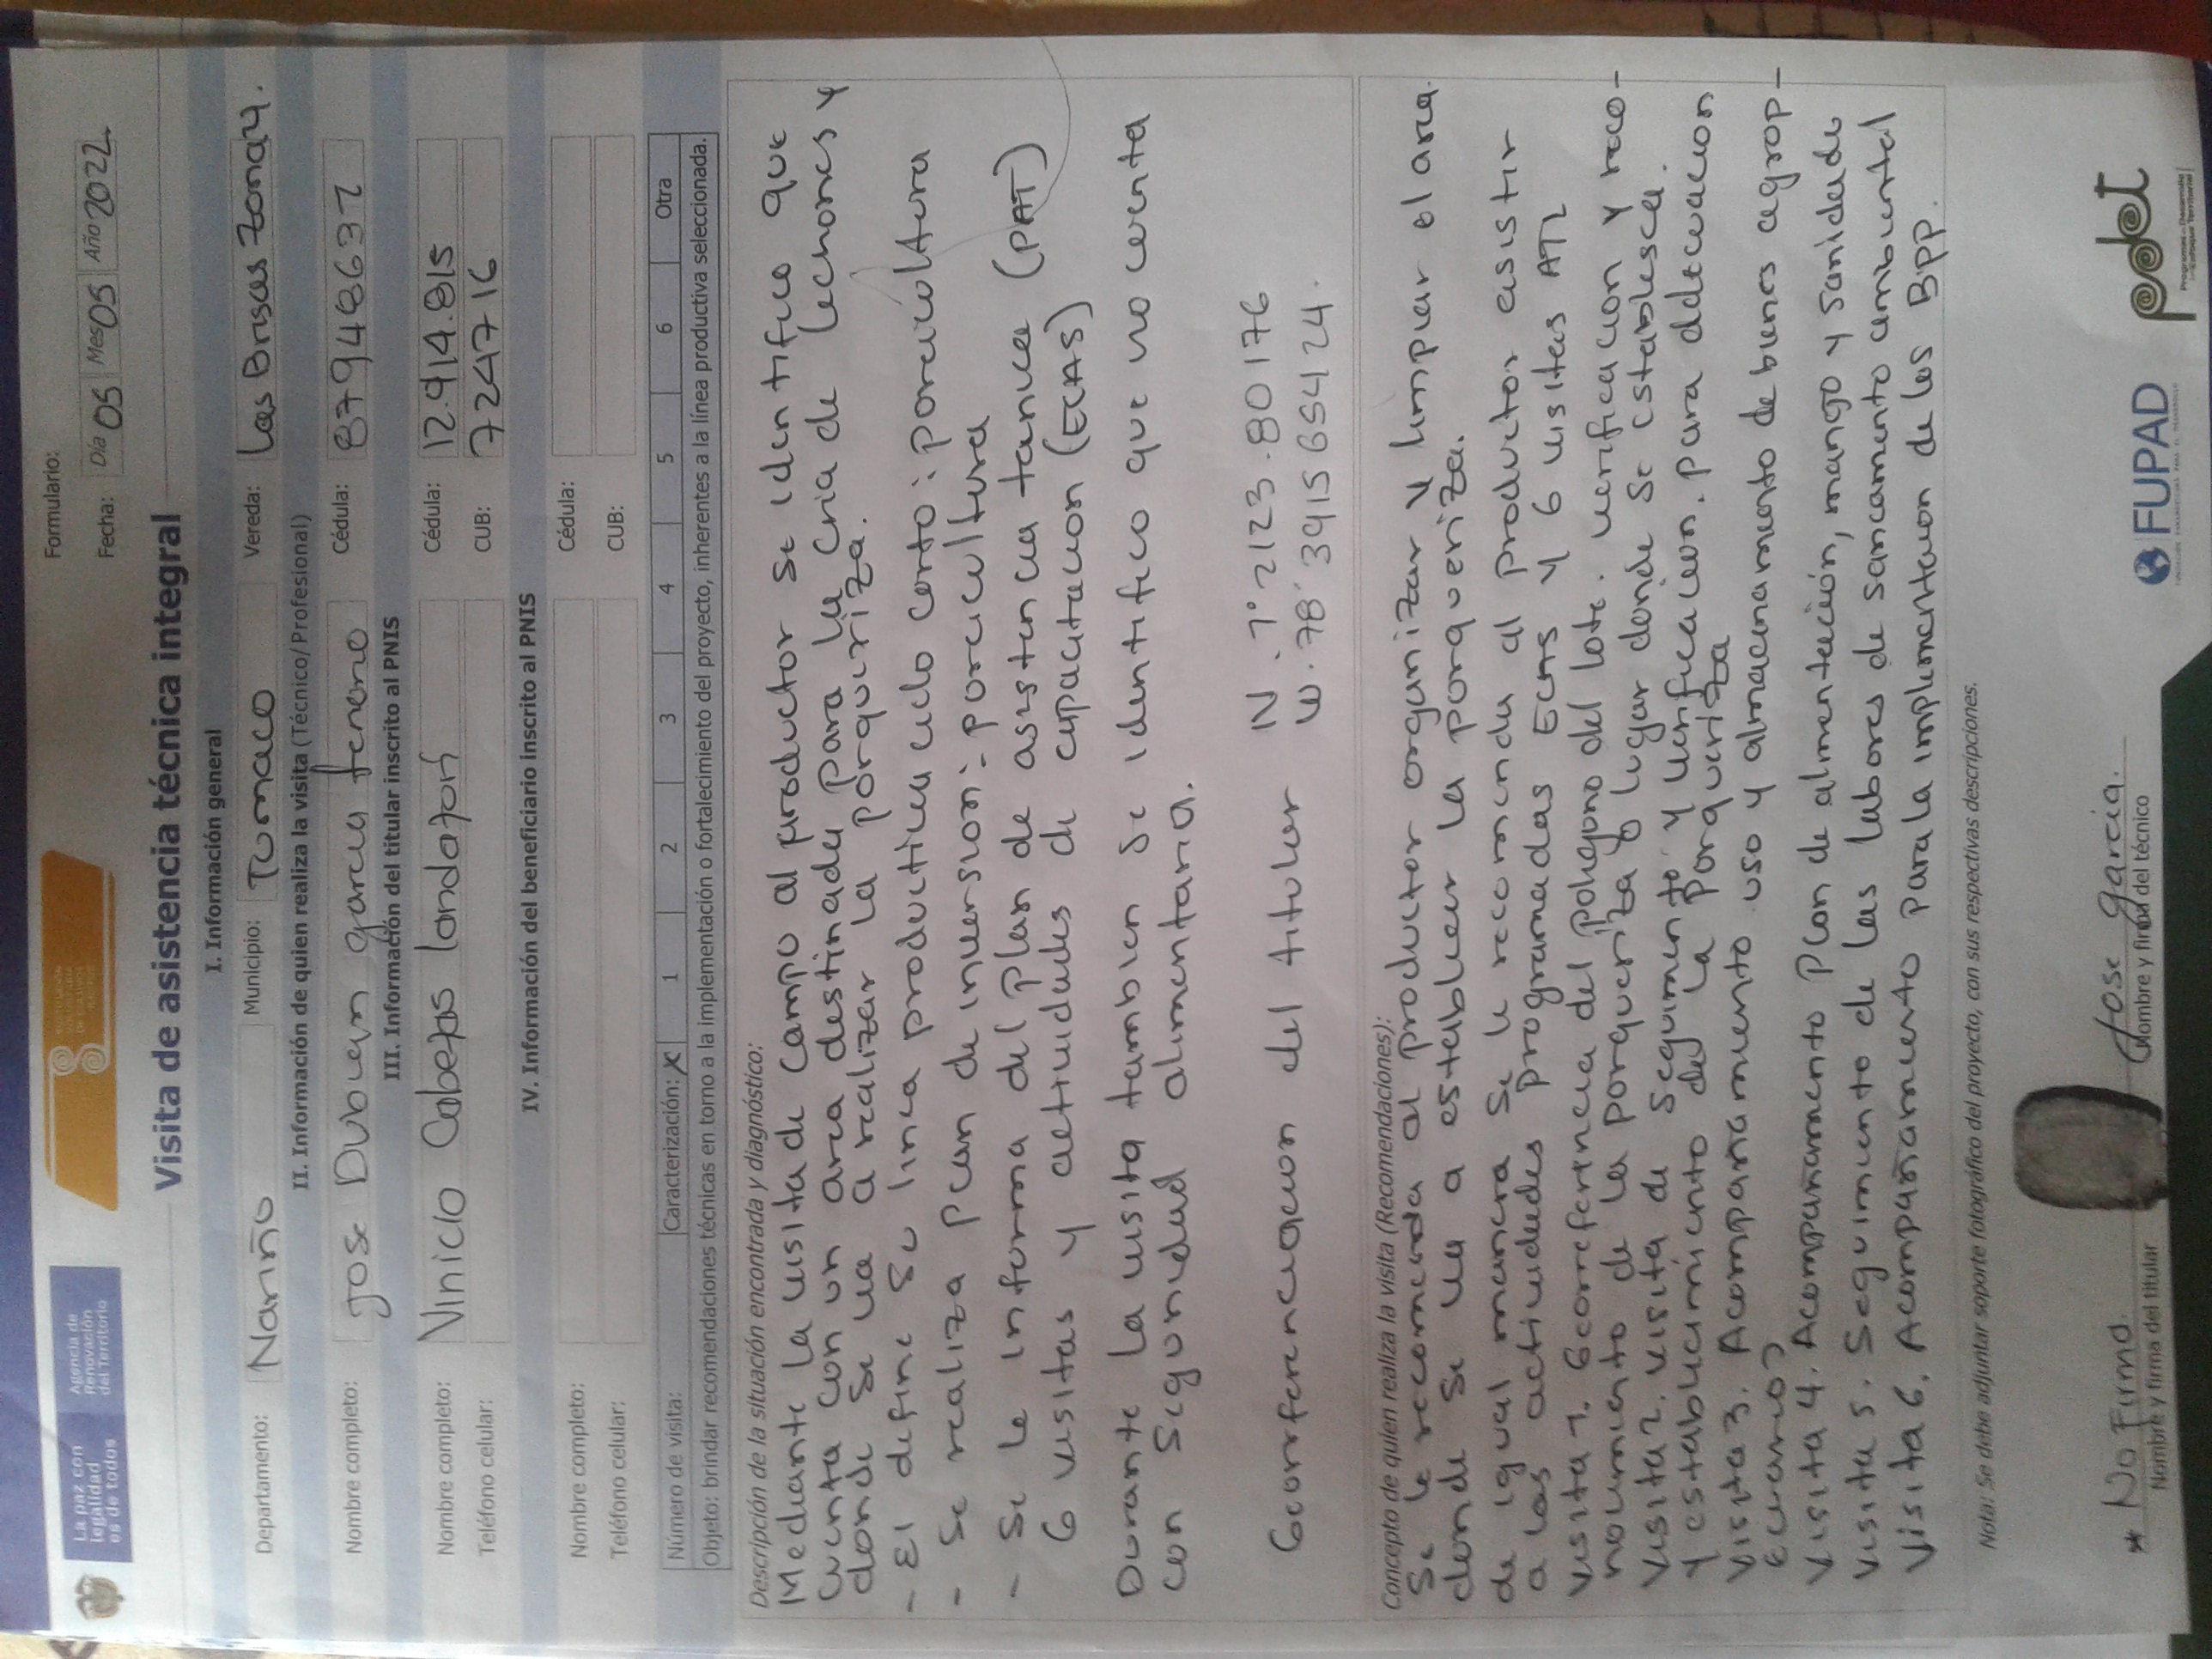 La paz con
legalidad
es de todos
Agencia de
Renovación
del Territorio
Formulario:
Fecha: Día 05 Mes 05 Año 2022
Visita de asistencia técnica integral
I. Información general
Departamento: Nariño Municipio: Tumaco Vereda: Las Brisas Zona 4.
II. Información de quien realiza la visita (Técnico/ Profesional)
Nombre completo: Jose Duban garcia feneno Cédula: 87948637
III. Información del titular inscrito al PNIS
Nombre completo: Vinicio Cabezas londoñon Cédula: 12.914.815
Teléfono celular: CUB: 7224716
IV. Información del beneficiario inscrito al PNIS
Nombre completo: Cédula:
Teléfono celular: CUB:
Número de visita: Caracterización: X 1 2 3 4 5 6 Otra
Objeto: brindar recomendaciones técnicas en torno a la implementación o fortalecimiento del proyecto, inherentes a la línea productiva seleccionada.
Descripción de la situación encontrada y diagnóstico:
Mediante la visita de Campo al productor se identifico que
cuenta con un area destinada para la cria de lechones y
donde se va a realizar la porqueriza.
- El define su linea productiva ciclo corto: porcicultura
- se realiza plan de inversion: porcicultura
- se le informa del plan de asistencia tecnica (PAT)
6 visitas y actividades de capacitacion (ECAS)
Durante la visita tambien se identifico que no cuenta
con seguridad alimentaria.
Georreferenciacion del titular N. 1° 2123.80176
W. 78° 3915654 24.
Concepto de quien realiza la visita (Recomendaciones):
Se le recomienda al productor organizar y limpiar el area
donde se va a establecer la porqueriza.
de igual manera se le recomienda al productor asistir
a las actividades programadas ECAS y 6 visitas ATI
visita 1. Georreferencia del poligono del lote. verificacion y reco-
nocimiento de la porqueriza y lugar donde se establesca.
visita 2. visita de seguimiento y verificacion. para adecuacion
y establecimiento de la porqueriza
visita 3. Acompañamiento uso y almacenamiento de bunas agrop-
ecuarios
visita 4. Acompañamiento Plan de alimentación, manejo y sanidad
visita 5. Seguimiento de las labores de saneamiento ambiental
visita 6. Acompañamiento para la implementacion de las BPP.
Nota: Se debe adjuntar soporte fotográfico del proyecto, con sus respectivas descripciones.
* No Firma.
Nombre y firma del titular
Jose garcia.
Nombre y firma del técnico
FUPAD
pdet
Programas de Desarrollo
con Enfoque Territorial